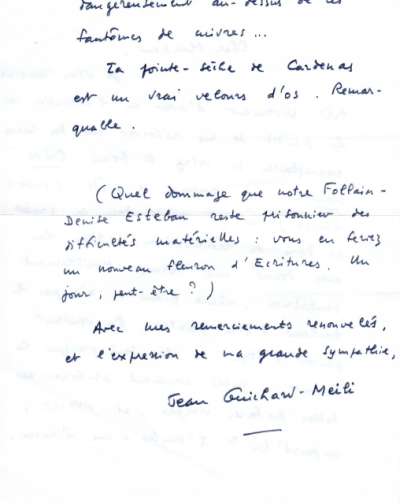 dangereusement au-dessus de ces
fantômes de cuivres...
La pointe-sèche de Cardenas
est un vrai velours d'os. Remar-
quable.
(Quel dommage que notre Follain-
Denise Esteban reste prisonnier des
difficultés matérielles : vous en feriez
un nouveau fleuron d'Ecritures. Un
jour, peut-être ?)
Avec mes remerciements renouvelés,
et l'expression de ma grande sympathie,
Jean Guichard-Meili